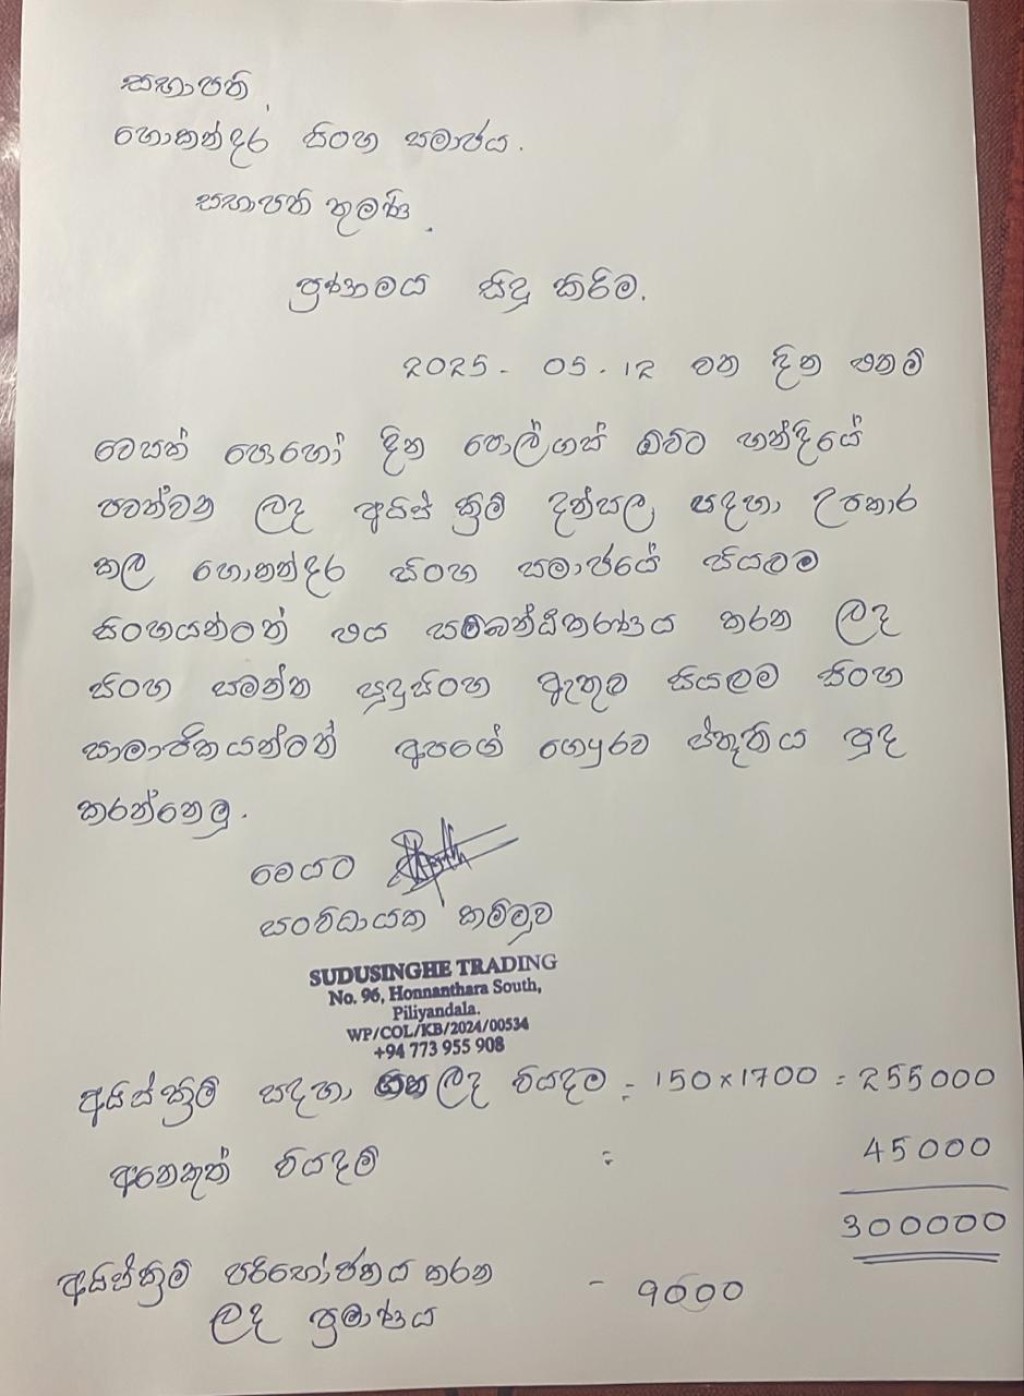 සභාපති,
හොකන්දර සිංහ සමාජය.
සභාපති තුමණි.
ප්‍රණාමය සිදු කිරිම.
2025 - 05 . 12 වන දින එනම්
වෙසක් පොහෝ දින පොල්ගස් ඕවිට හන්දියේ
පවත්වන ලද අයිස් ක්‍රිම් දන්සල සදහා උපකාර
කල හොකන්දර සිංහ සමාජයේ සියලුම
සිංහයන්ටත් එය සම්බන්ධිකරණය කරන ලද
සිංහ සමන්ත සුදුසිංහ ඇතුළු සියලුම සිංහ
සාමාජිකයන්ටත් අපගේ ගෞරව ස්තූතිය පුද
කරන්නෙමු.
මෙයට
සංවිධායක කම්ටුව
SUDUSINGHE TRADING
No. 96, Honnanthara South,
Piliyandala.
WP/COL/KB/2024/00534
+94 773 955 908
අයිස්ක්‍රිම් සදහා ලද වියදම = 150 x 1700 = 255000
අනෙකුත් වියදම් = 45000
300000
අයිස්ක්‍රිම් පරිභෝජනය කරන - 9000
ලද ප්‍රමාණය